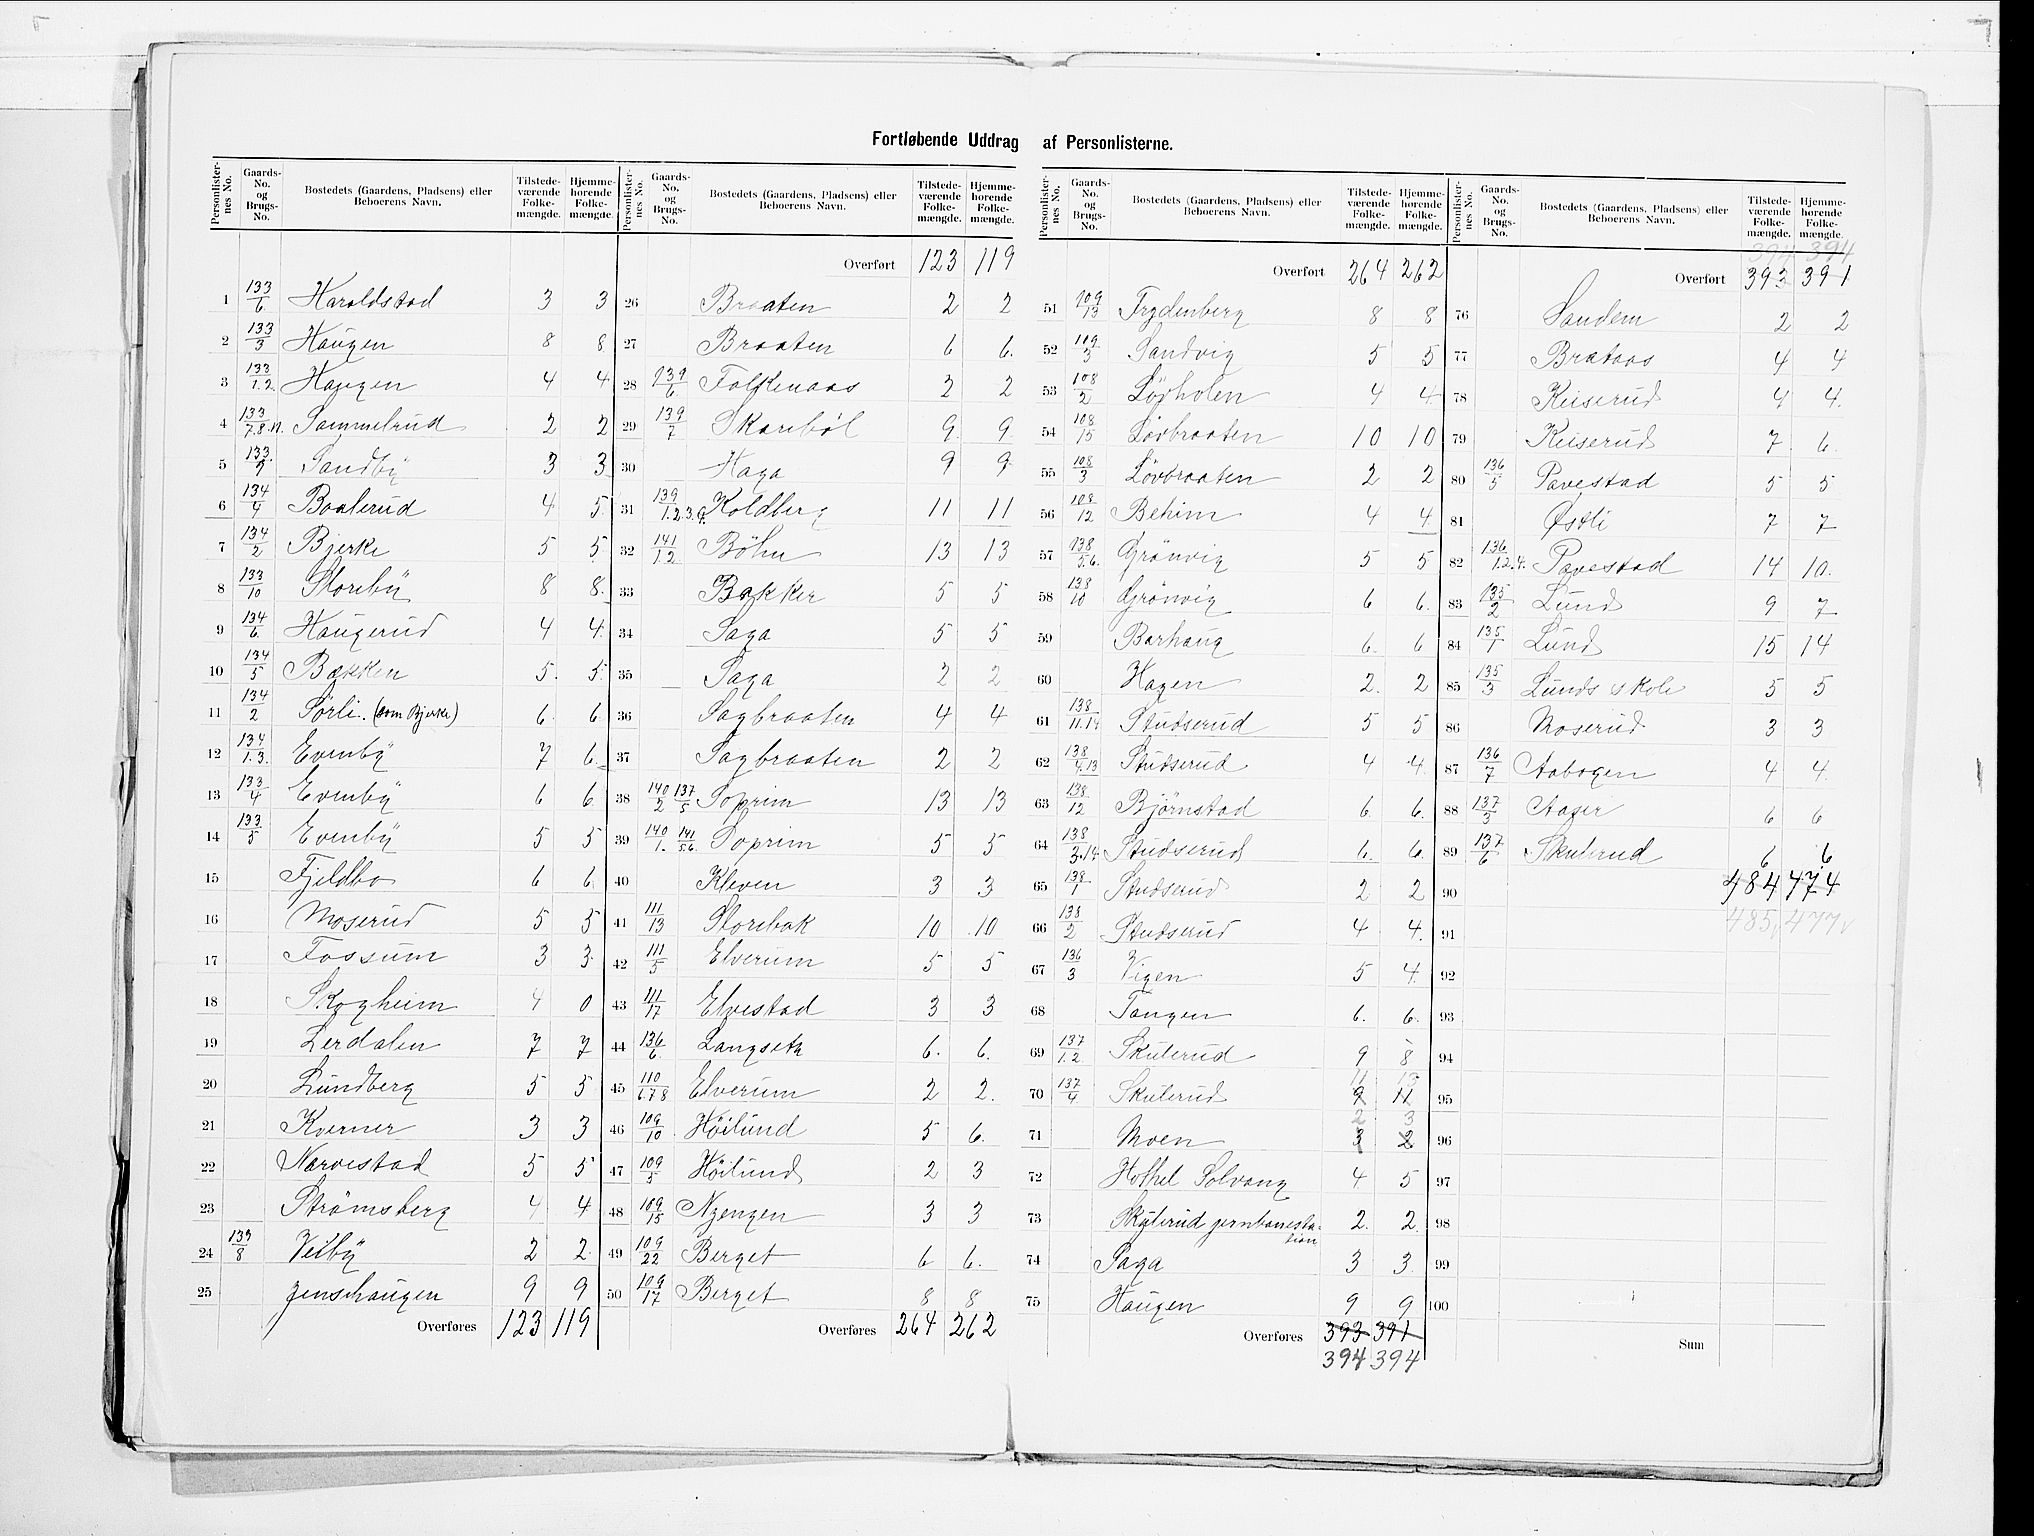 Fortløbende Uddrag af Personlisterne.
Personlisternes No. Gaards-No. og Brugs-No. Bostedets (Gaardens, Pladsens) eller Beboerens Navn. Tilstedeværende Folkemængde. Hjemmehørende Folkemængde.
1 133/6 Haroldstad 3 3
2 133/3 Haugen 8 8
3 133/1.2 Haugen 4 4
4 133/7.8.11. Sammelrud 2 2
5 133/9 Sandby 3 3
6 134/4 Boolerud 4 5
7 134/2 Bjerke 5 5
8 133/10 Storeby 8 8
9 134/6 Haugerud 4 4
10 134/5 Bakken 5. 5
11 134/2 Sørli. (som Bjerke) 6 6
12 134/1.3. Evenby 7 6
13 133/4 Evenby 6 6
14 133/5 Evenby 5 5
15 Fjeldbo 6 6
16 Moserud 5 5
17 Fossum 3 3
18 Skogheim 4 0
19 Lerdalen 7 7
20 Lundberg 5 5
21 Kverner 3 3
22 Narvestad 5 5
23 Strømsberg 4 4
24 139/8 Veiby 2 2
25 Jenshaugen 9 9
Overføres 123 119
Personlisternes No. Gaards-No. og Brugs-No. Bostedets (Gaardens, Pladsens) eller Beboerens Navn. Tilstedeværende Folkemængde. Hjemmehørende Folkemængde.
Overført 123 119
26 Braaten 2 2
27 Braaten 6 6.
28 139/6 Falkenaas 2 2
29 139/7 Skarebøl 9 9
30 Haga 9 9
31 139/1.2.3.9. Koldberg 11 11
32 141/1.2 Bøhn 13 13
33 Bakker 5 5
34 Saga 5 5
35 Saga 2 2
36 Sagbraaten 4 4
37 Sagbraaten 2 2
38 140/2 137/5 Soprim 13 13
39 140/1. 141/5.6. Soprim 5 5
40 Kleven 3 3
41 111/13 Storebak 10 10
42 111/5 Elverum 5 5
43 111/17 Elvestad 3 3
44 136/6. Langseth 6. 6.
45 110/6.7.8 Elverum 2 2.
46 109/10 Høilund 5 6.
47 109/5 Høilund 2 3
48 109/15 Nyengen 3 3
49 109/22 Berget 6 6.
50 109/17 Berget 8 8
Overføres 264 262
Personlisternes No. Gaards-No. og Brugs-No. Bostedets (Gaardens, Pladsens) eller Beboerens Navn. Tilstedeværende Folkemængde. Hjemmehørende Folkemængde.
Overført 264 262
51 109/13 Frydenberg 8 8
52 109/3 Sandvig 5 5
53 108/2 Løvholen 4 4
54 108/15 Løvbraaten 10 10
55 108/3 Løvbraaten 2 2
56 108/12 Behim 4 4
57 138/5.6. Grønvig 5 5
58 138/10 Grønvig 6 6.
59 Barhaug 6. 6
60 Hagen 2. 2
61 138/11.14 Studserud 5 5
62 138/4.13 Studserud 4 4.
63 138/12 Bjørnstad 6. 6.
64 138/3.14 Studserud 6. 6.
65 138/1 Studserud 2 2
66 138/2 Studserud 4 4.
67 136/3 Vigen 5 4.
68 Tangen 6. 6.
69 137/1.2 Skulerud 9 8
70 137/4 Skulerud 9 11 11 13
71 Moen 3 2 2 3
72 Hothel Solvang 4 5
73 Skulerud jernbanesta-
tion 2. 2
74 Saga 3 3
75 Haugen 9 9
Overføres 393 391
394 394
Personlisternes No. Gaards-No. og Brugs-No. Bostedets (Gaardens, Pladsens) eller Beboerens Navn. Tilstedeværende Folkemængde. Hjemmehørende Folkemængde.
394 394
Overført 393 391
76 Sandem 2 2
77 Brataas 4 4
78 Keiserud 4 4.
79 Keiserud 7 6.
80 136/5 Pavestad 5 5
81 Østli 7 7
82 136/1.2.4. Pavestad 14 10.
83 135/2 Lund 9 7
84 135/1 Lund 15 14
85 135/3 Lunds skole 5 5
86 Moserud 3 3
87 136/7 Aabogen 4 4.
88 137/3 Aaser 6 6
89 137/6 Skulerud 6 6
90 484 474
91 485, 477
92
93
94
95
96
97
98
99
100
Sum